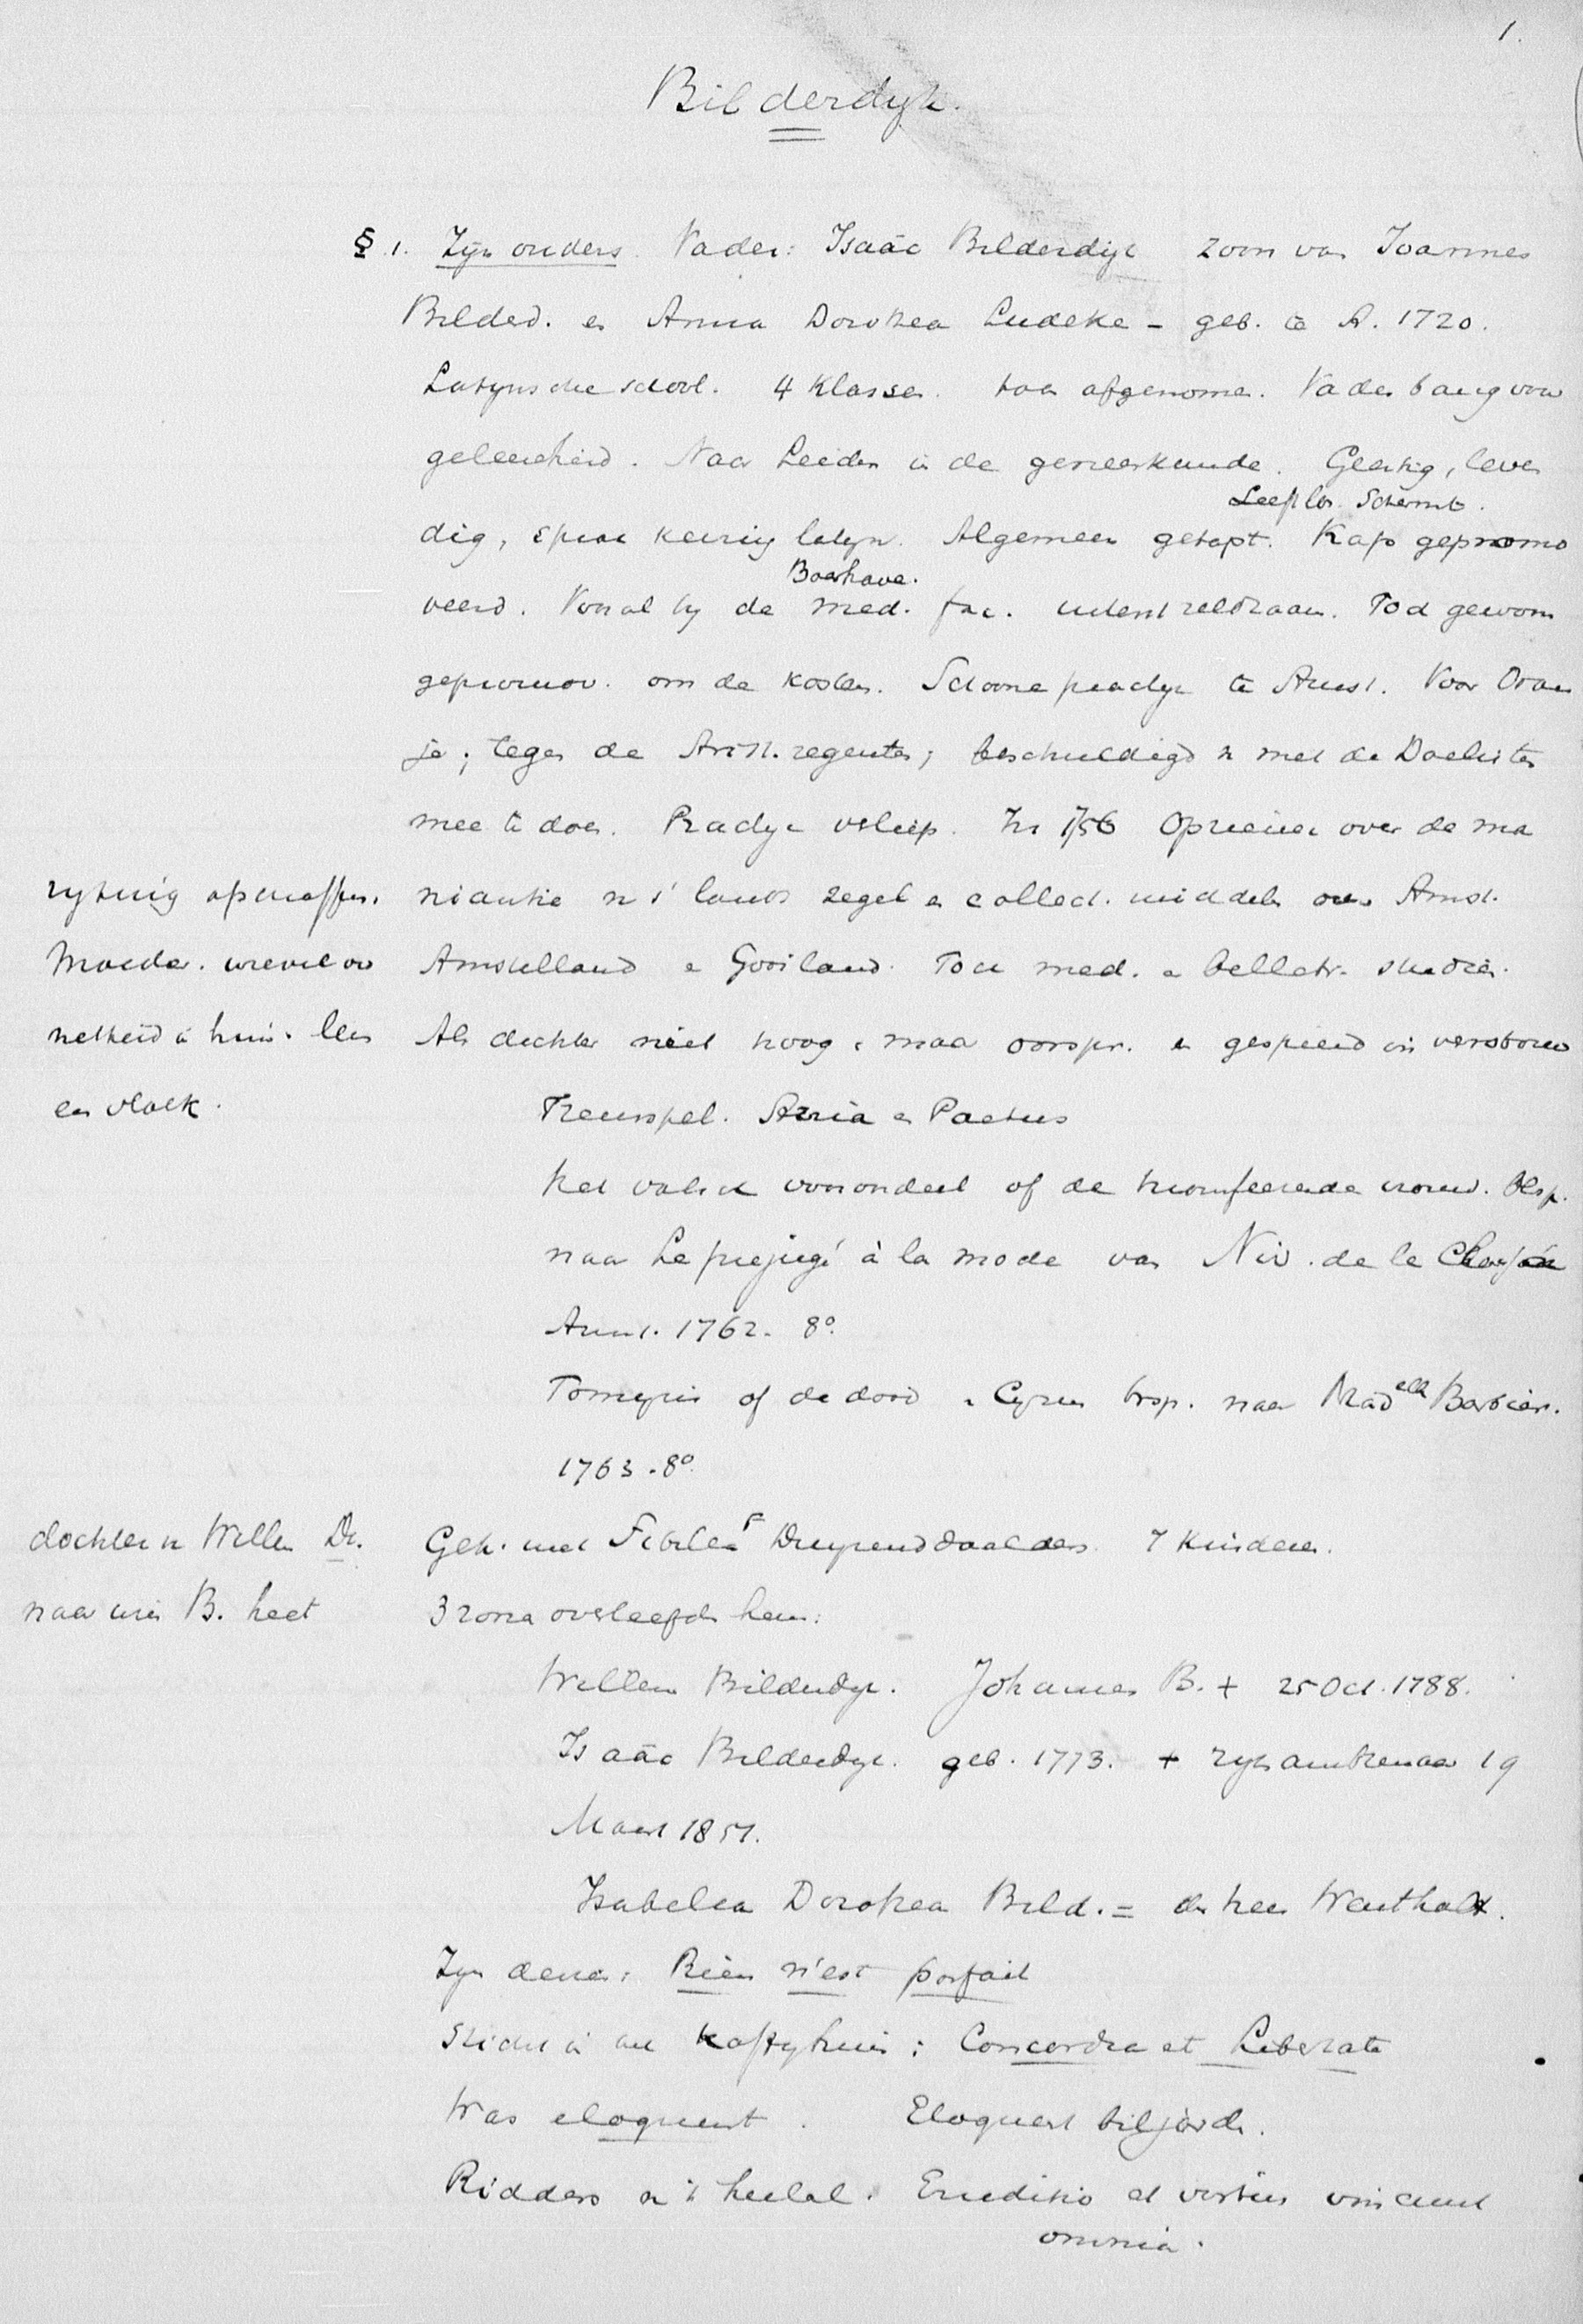 1.
Bilderdyk.
§ 1. Zijn ouders. Vader: Isaäc Bilderdijk zoon van Joannes
Bilderd. en Anna Dorothea Ludeke – geb. te A. 1720.
Latynsche school. 4 klassen. toen afgenomen. Vader bang voor
geleerdheid. Naar Leiden in de geneeskunde. Geestig, leven
Leeftbr. Schermt.
dig, sprak keurig latyn. Algemeen getapt. Kap gepromo
Boerhave.
veerd. Vooral by de med. fac. uiterst zeldzaam. Toch gewoon
gepromov. om de kosten. Schoone praktyk te Amst. Voor Oran
je; tegen de Arist. regenten; beschuldigd v met de Doelisten
mee te doen. Praktyk verliep. In 1756 Opziener over de ma
rytuig afschaffen. niantie v 's lands zegel en collect. middelen over Amst.
Moeder. wrevel ov Amstelland en Gooiland. Toen med. en belletr. studiën.
netheid in huis. Een Als dichter niet hoog, maar oorspr. en gespierd in versbouw
en vloek.
Treurspel. Arria en Paetus
Het valsch vooroordeel of de triomfeerende vrouw. blsp.
naar Le préjugé à la mode van Niv. de la Chaussée
Amst. 1762. 8°.
Tomyris of de dood v Cyrus trsp. naar Mad elle Barbier.
1763. 8°.
dochter v Willem Dr. Geh. met Sibilla F Duyzenddaalders. 7 kinderen.
naar wien B. heet 3 zonen overleefden hem:
Willem Bilderdyk. Johannes B. + 25 Oct. 1788.
Isaäc Bilderdyk. geb. 1773. + ryksambtenaar 19
Maart 1851.
Isabella Dorothea Bild. = den heer Wentholt.
Zyn devies: Rien n'est parfait
Sticht in een koffyhuis: Concordia et Libertate
Was eloquent. Eloquent biljard.
Ridders v 't heelal. Eruditio et virtus vincunt
omnia.